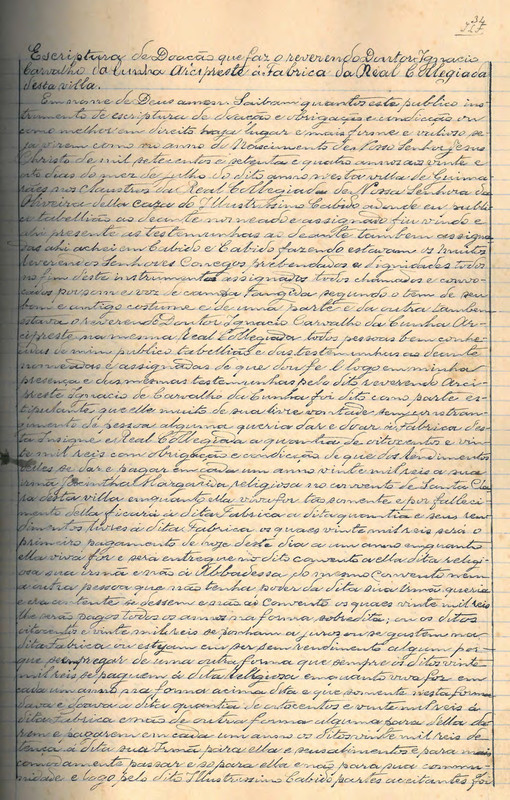 34
Escriptura de Doação que faz o reverendo Doutor Ignacio
Carvalho da Cunha Arcipreste á Fabrica da Real Collegiada
desta villa.
Em nome de Deus amen. Saibam quantos este publico ins-
trumento de escriptura de doação e obrigação e condição ou
como melhor em direito haja lugar e mais firme e valioso se-
ja virem como no anno do Nascimento de Nosso Senhor Jesus
Christo de mil setecentos e setenta e quatro annos aos vinte e
oito dias do mez de julho do dito anno nesta villa de Guima-
rães nos claustros da Real Collegiada de Nossa Senhora da
Oliveira e na caza do Illustrissimo Cabido aonde eu publi-
co tabellião ao deante nomeado e assignado fui vindo e
ahi presente as testemunhas ao deante tambem assigna-
das ahi achei em Cabido e Cabido fazendo estavam os Muitos
Reverendos Senhores Conegos Prebendados e dignidades todos
no fim deste instrumento assignados todos chamados e convo-
cados por som e voz de campa tangida segundo o tem de seu
bom e antigo costume e de uma parte e da outra tambem
estava o reverendo Doutor Ignacio Carvalho da Cunha Ar-
cipreste na mesma Real Collegiada todos pessoas bem conhe-
cidas de mim publico tabellião e das testemunhas ao deante
nomeadas e assignadas de que dou fé. E logo em minha
presença e das mesmas testemunhas pelo dito reverendo Arci-
preste Ignacio de Carvalho da Cunha foi dito como parte es-
tipulante que elle muito de sua livre vontade sem constran-
gimento de pessoa alguma queria dar e doar á Fabrica des-
ta Insigne e Real Collegiada a quantia de oitocentos e vin-
te mil reis com obrigação e condição de que dos rendimentos
delles se dar e pagar em cada um anno vinte mil reis a sua
irmã Jacintha Margarida religiosa no convento de Santa Cla-
ra desta villa emquanto ella viva for tão somente e por falleci-
mento della ficará á dita Fabrica a dita quantia e seus ren-
dimentos livres á dita Fabrica os quaes vinte mil reis será o
primeiro pagamento de hoje deste dia a um anno emquanto
ella viva for e será entregue no dito convento a ella dita religi-
osa sua irmã e não á Abbadessa do mesmo convento nem
a outra pessoa que não tenha poder da dita sua Irmã queria
e era contente se dessem e não ao Convento os quaes vinte mil reis
lhe serão pagos todos os annos na forma sobredita; ou os ditos
oitocentos e vinte mil reis se ponham a juros ou se gastem na
dita Fabrica ou estejam em ser sem rendimento algum por-
que se empregar de uma outra forma que sempre os ditos vinte
mil reis se paguem á dita Religiosa emquanto viva for em
cada um anno na forma acima dita e que somente nesta forma
dava e doava a dita quantia de oitocentos e vinte mil reis á
dita Fabrica e não de outra forma alguma para della da-
rem e pagarem em cada um anno os ditos vinte mil reis de
tença á dita sua Irmã para ella e seus alimentos e para mais
comodamente passar e se para ella e não para sua commu-
nidade e logo pelo dito Illustrissimo Cabido partes aceitantes foi